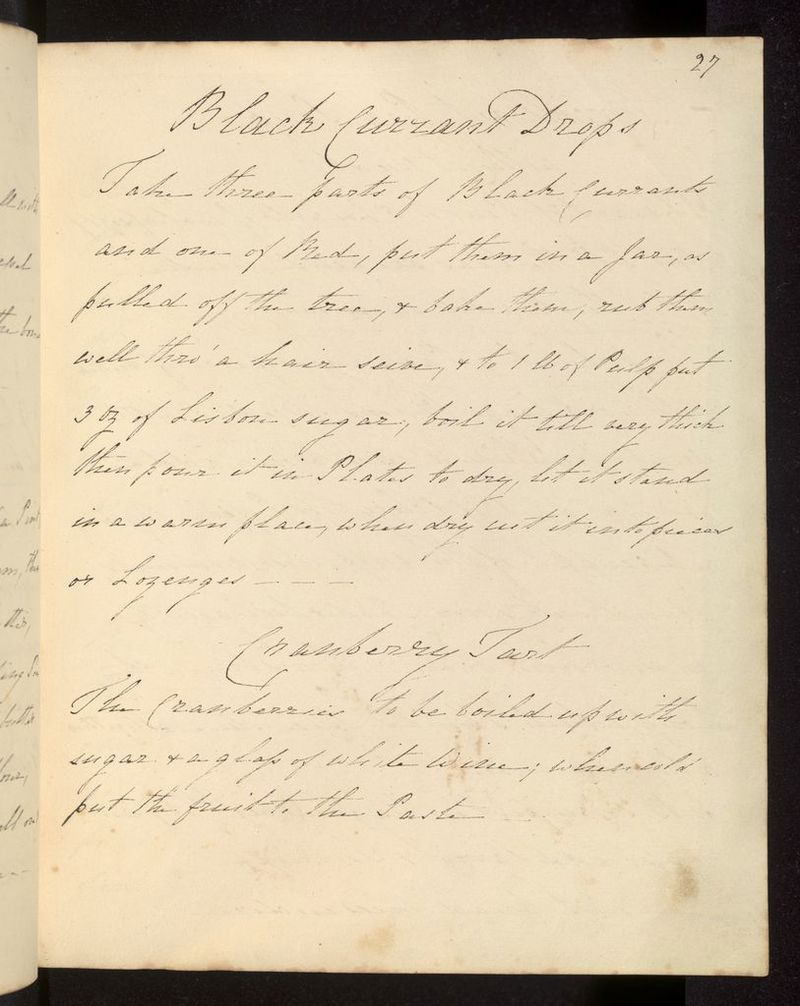 27
Black Currant Drops
Take three parts of Black Currants
and one of Red, put them in a Jar, as
pulled off the tree, & bake them, rub them
well thro' a hair seive, & to 1 lb of Pulp put
3 oz of Lisbon sugar, boil it till very thick
then pour it in Plates to dry, let it stand
in a warm place, when dry cut it into pieces
or Lozenges - - -
Cranberry Tart
The Cranberries to be boiled up with
sugar & a glass of white Wine; when cold
put the fruit to the Paste